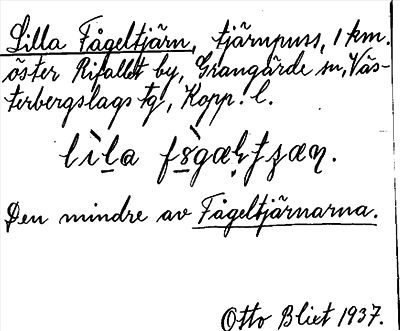 Lilla Fågeltjärn, tjärnpuss, 1 km.
öster Rifallet by, Grangärde sn, Väs-
terbergslags tg, Kopp. l.
lìla
Den mindre av Fågeltjärnarna.
Otto Blixt 1937.